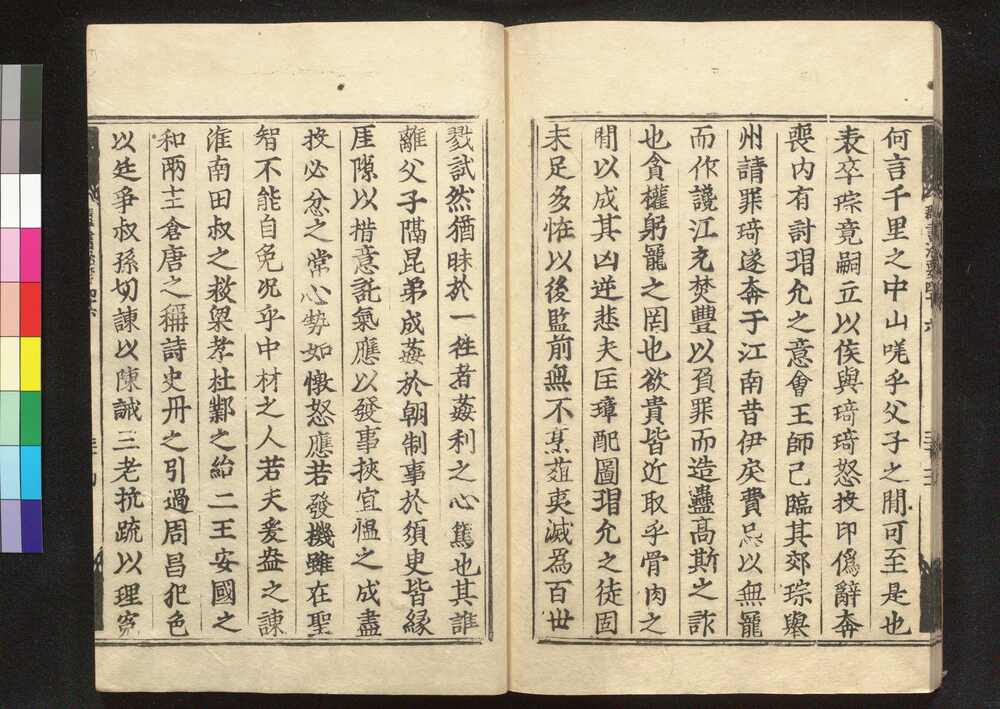 何言千里之中山嗟乎父子之間可至是也
表卒琮竟嗣立以侯與琦琦怒投印僞辭奔
喪内有討瑁允之意會王師已臨其郊琮舉
州請罪琦遂奔于江南昔伊戾費忌以無寵
而作讒江充焚豐以負罪而造蠱高斯之詐
也貪權躬寵之罔也欲貴皆近取乎骨肉之
間以成其凶逆悲夫匡璋配圖瑁允之徒固
未足多怪以後監前無不烹菹夷滅為百世
戮試然猶昧於一徃者姦利之心篤也其誰
離父子隔昆弟成姦於朝制事於須臾皆縁
厓隙以措意託氣應以發事挾宜慍之成畫
投必忿之常心勢如憞怒應若發機雖在聖
智不能自免况乎中材之人若夫爰盎之諫
淮南田叔之救梁孝杜鄴之紿二王安國之
和兩主倉唐之稱詩史丹之引過周昌犯色
以廷爭叔孫切諫以陳誡三老抗疏以理寃